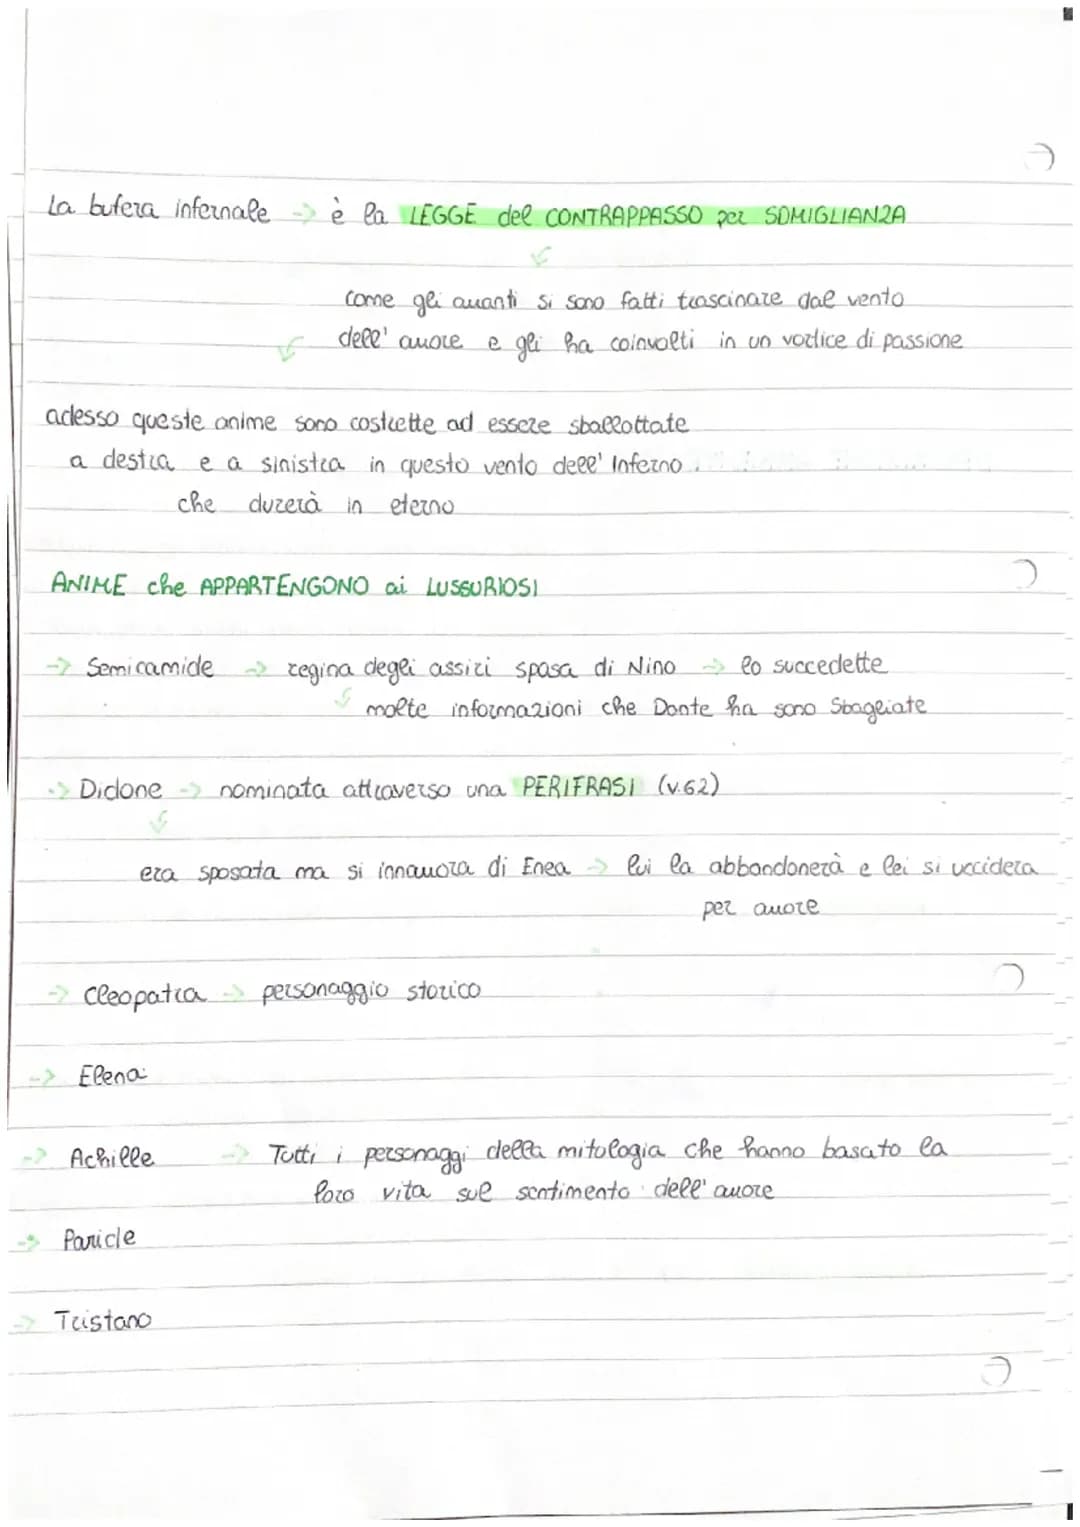 La bufera infernale -> è la LEGGE del CONTRAPPASSO per SOMIGLIANZA
come gli amanti si sono fatti trascinare dal vento
dell'amore e gli ha coinvolti in un vortice di passione
adesso queste anime sono costrette ad essere sballottate
a destra e a sinistra in questo vento dell'Inferno
che durerà in eterno
ANIME che APPARTENGONO ai LUSSURIOSI
-> Semiramide -> regina degli assiri sposa di Nino -> lo succedette
molte informazioni che Dante ha sono sbagliate
-> Didone -> nominata attraverso una PERIFRASI (v.62)
era sposata ma si innamora di Enea -> lui la abbandonerà e lei si uccidera
per amore
-> Cleopatra -> personaggio storico
-> Elena
-> Achille -> Tutti i personaggi della mitologia che hanno basato la
loro vita sul sentimento dell'amore
-> Paride
-> Tristano